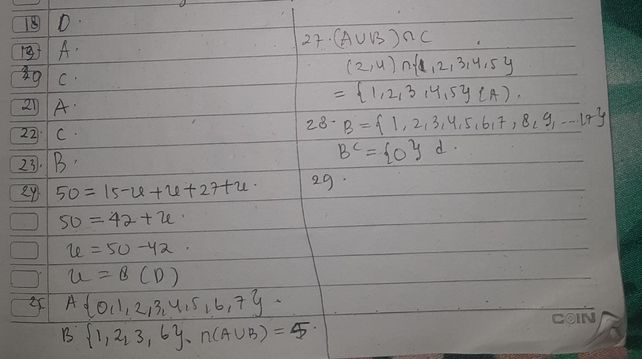 18 D.
19. A.
20 C.
21 A.
22. C.
23. B.
24. 50 = 15-x + x + 27 + x.
50 = 42 + x.
x = 50 - 42.
x = 8 (D)
25. A {0,1,2,3,4,5,6,7}.
B {1,2,3,6}. n(AUB) =
27. (AUB)∩C
(2,4)∩{1,2,3,4,5}
= {1,2,3,4,5} (A).
28. B = {1,2,3,4,5,6,7,8,9,...17}
Bᶜ = {0} d.
29.
COIN